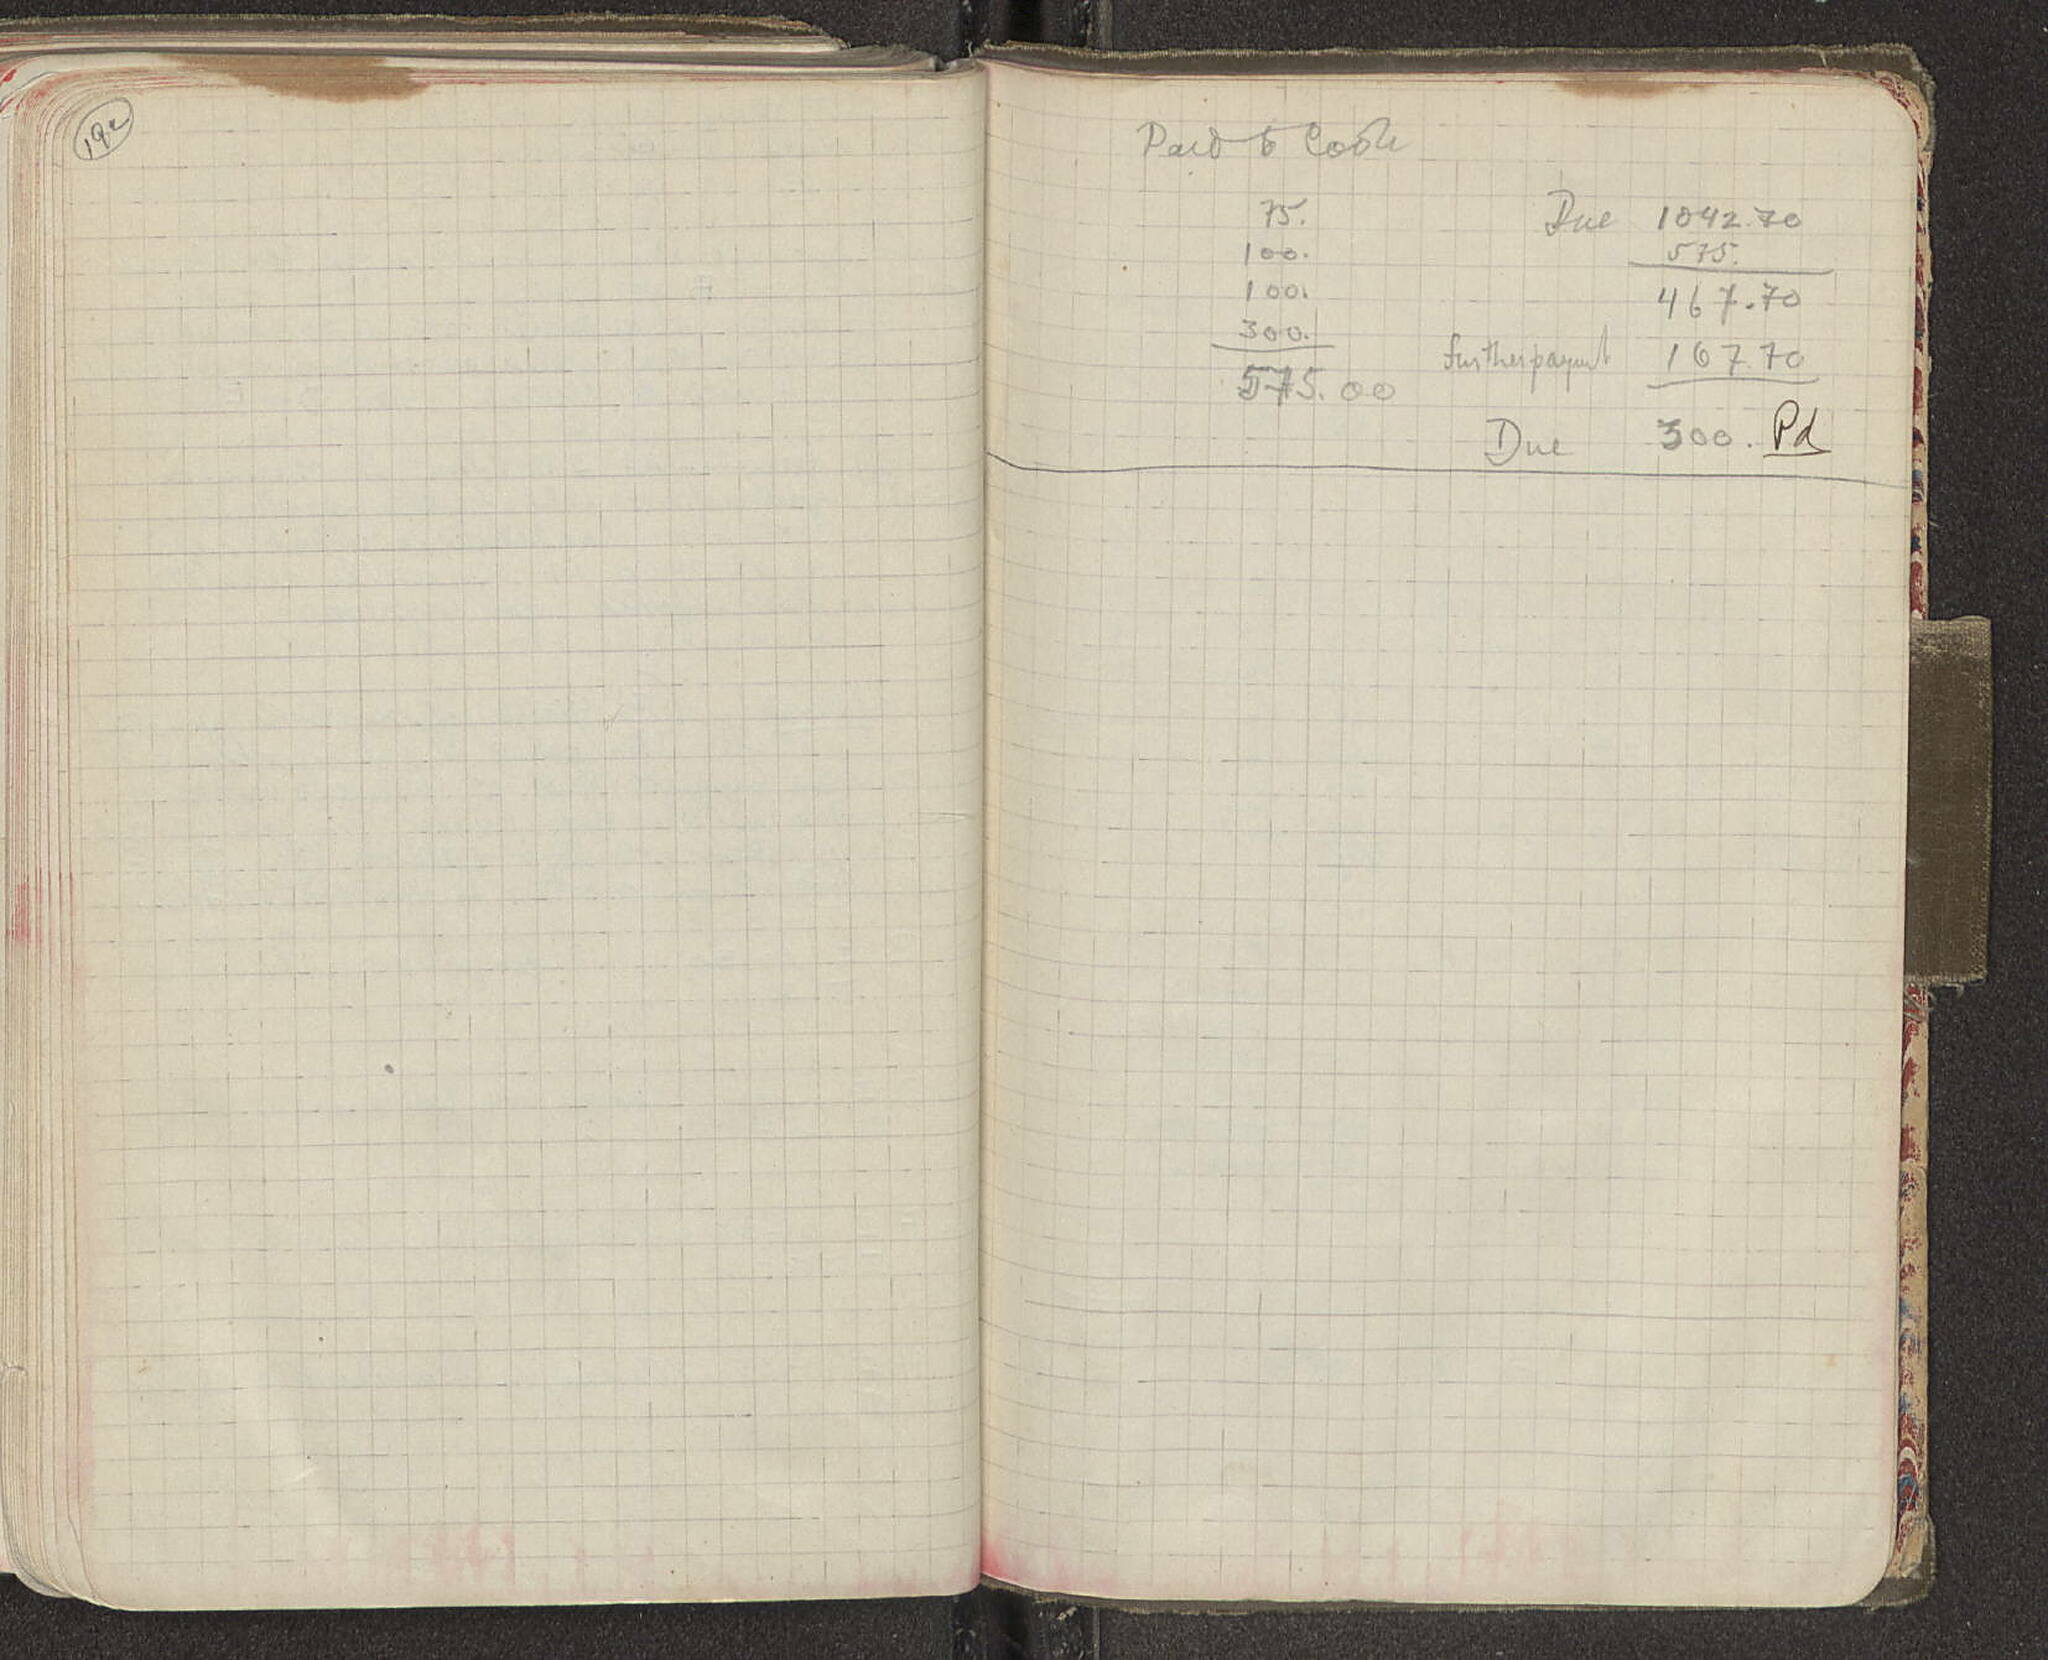 192
Paid to Cook
75.
100.
100.
300.
575.00
Due 1042.70
575.
467.70
furtherpaymt 167 70
Due 300. Pd